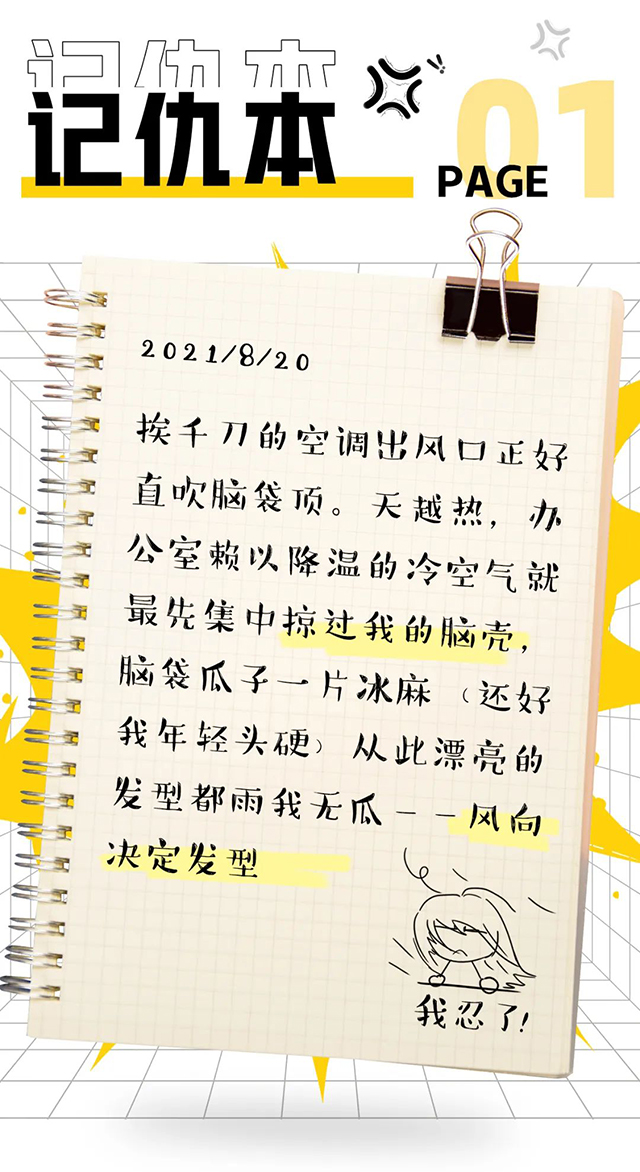 记仇本
记仇本
01
PAGE
2021/8/20
挨千刀的空调出风口正好
直吹脑袋顶。天越热，办
公室赖以降温的冷空气就
最先集中掠过我的脑壳，
脑袋瓜子一片冰麻（还好
我年轻头硬）从此漂亮的
发型都雨我无瓜－－风向
决定发型
我忍了!